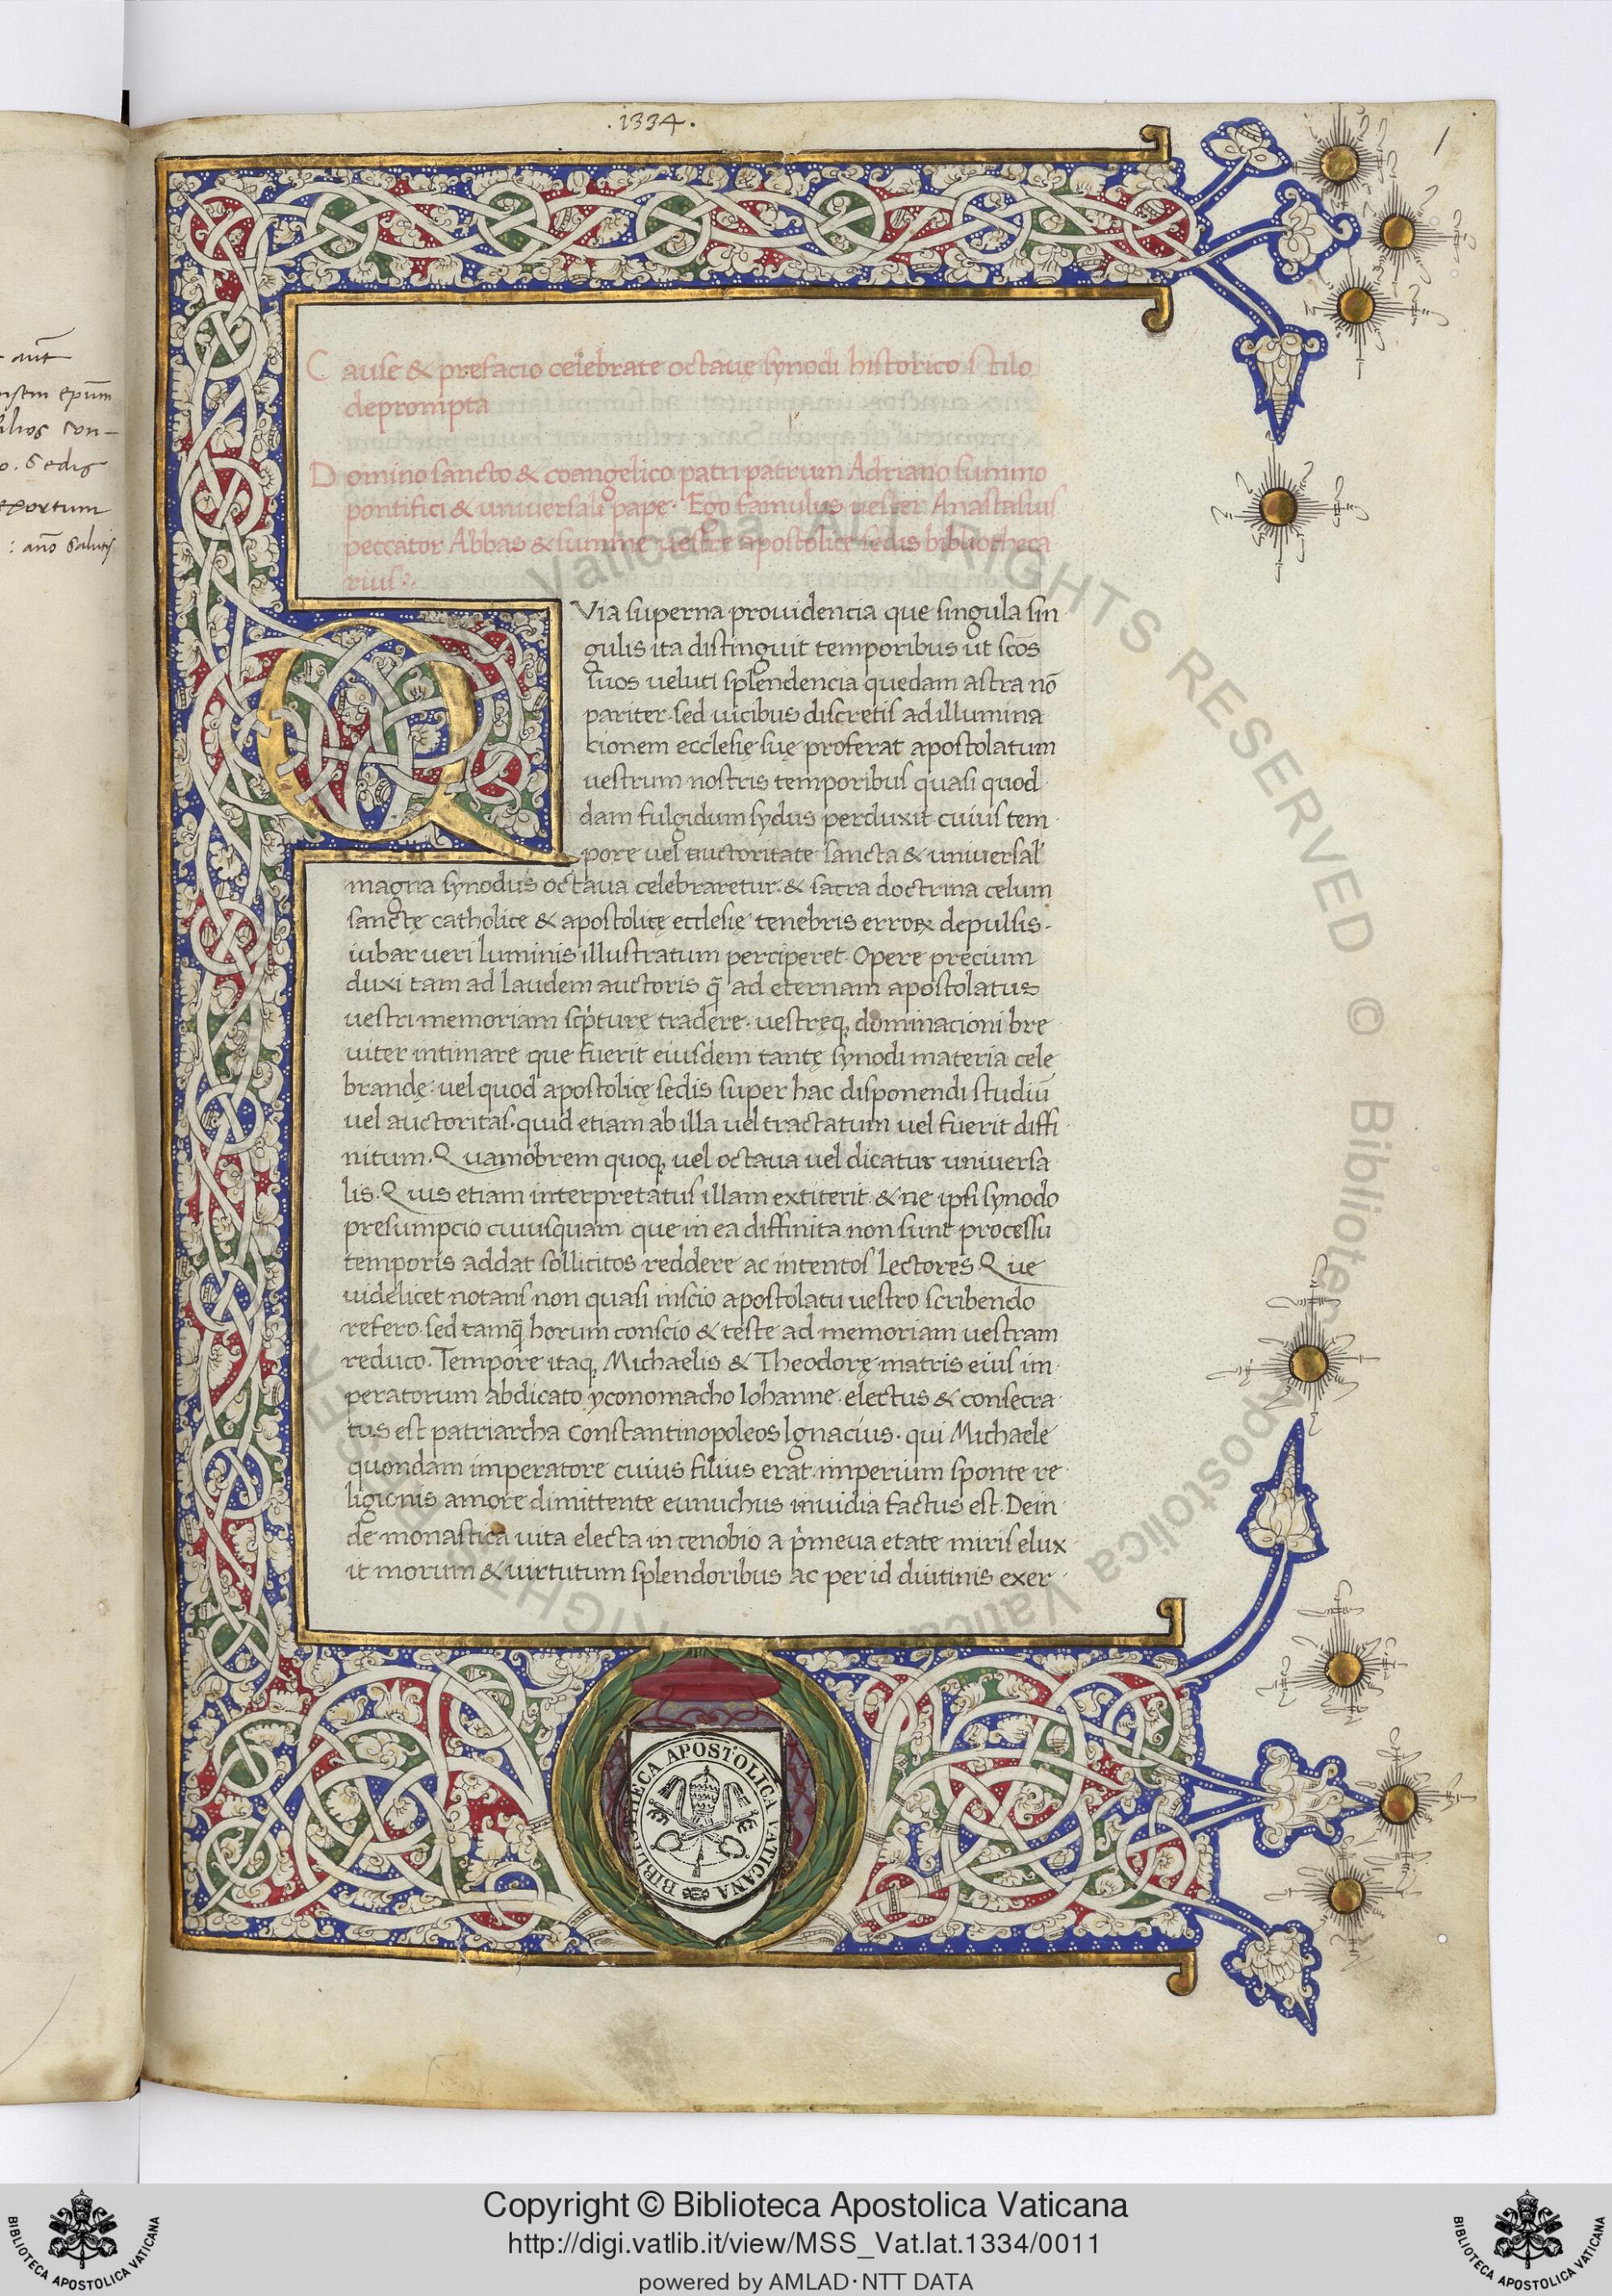 .1334.
1
aut
nsem epum
ilios con-
o. Sedis
: ano salutis
Cause & prefacio celebrate octauę synodi historico stilo
deprompta
Domino sancto & coangelico patri patrum Adriano summo
pontifici & uniuersali pape. Ego famulus uester Anastasius
peccator Abbas & summe uestre apostolice sedis bibliotheca
rius:.
QVia superna prouidencia que singula sin
gulis ita distinguit temporibus ut scos
suos ueluti splendencia quedam astra nō
pariter. sed uicibus discretis ad illumina
cionem ecclesię suę proferat apostolatum
uestrum nostris temporibus quasi quod
dam fulgidum sydus perduxit cuius tem
pore uel auctoritate sancta & uniuersal'
magna synodus octaua celebraretur. & sacra doctrina celum
sanctę catholice & apostolicę ecclesię tenebris erroꝝ depulsis.
iubar ueri luminis illustratum perciperet. Opere precium
duxi tam ad laudem auctoris q̄ ad eternam apostolatus
uestri memoriam scp̄turę tradere. uestręq, dominacioni bre
uiter intimare que fuerit eiusdem tantę synodi materia cele
brandę: uel quod apostolicę sedis super hac disponendi studiū
uel auctoritas. quid etiam ab illa uel tractatum uel fuerit diffi
nitum. Quamobrem quoq, uel octaua uel dicatur uniuersa
lis. Quis etiam interpretatus illam extiterit. & ne ipsi synodo
presumpcio cuiusquam que in ea diffinita non sunt processu
temporis addat sollicitos reddere ac intentos lectores. Que
uidelicet notans non quasi inscio apostolatu uestro scribendo
refero. sed tamq̄ horum conscio & teste ad memoriam uestram
reduco. Tempore itaq, Michaelis & Theodorę matris eius im
peratorum abdicato yconomacho Iohanne. electus & consecra
tus est patriarcha Constantinopoleos Ignacius. qui Michaele
quondam imperatore cuius filius erat. imperium sponte re
ligionis amore dimittente eunuchus inuidia factus est. Dein
de monastica uita electa in cenobio a p̄meua etate miris elux
it morum & uirtutum splendoribus ac per id diutinis exer
BIBLIOTHECA APOSTOLICA VATICANA
Copyright © Biblioteca Apostolica Vaticana
http://digi.vatlib.it/view/MSS_Vat.lat.1334/0011
powered by AMLAD·NTT DATA
BIBLIOTECA APOSTOLICA VATICANA
BIBLIOTECA APOSTOLICA VATICANA